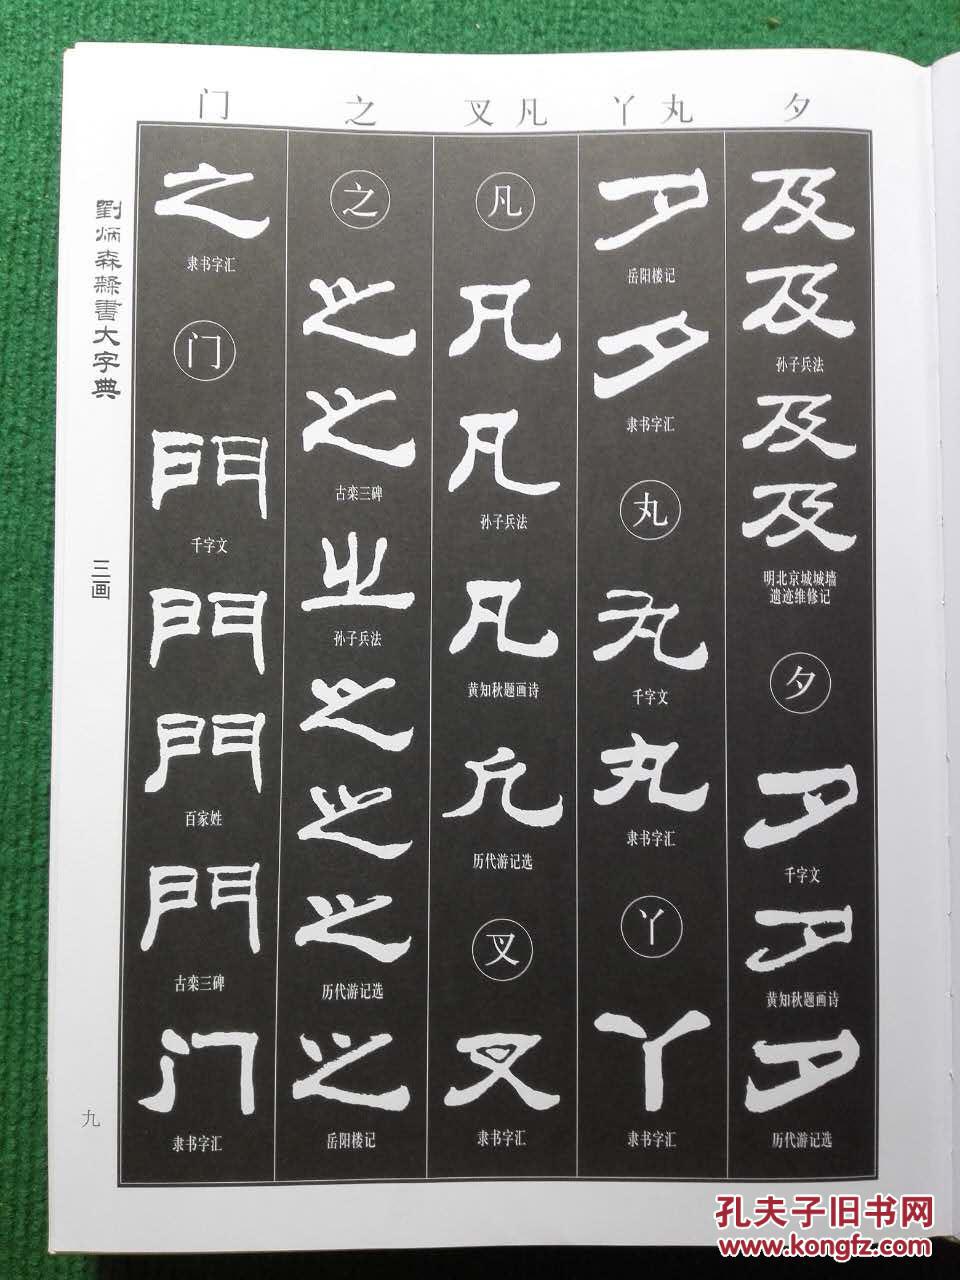 门 之 叉凡 丫丸 夕
劉炳森隸書大字典
三画
九
及
及
孙子兵法
及
及
明北京城城墙
遗迹维修记
夕
夕
千字文
夕
黄知秋题画诗
夕
历代游记选
夕
岳阳楼记
夕
隶书字汇
丸
丸
千字文
丸
隶书字汇
丫
丫
隶书字汇
凡
凡
凡
孙子兵法
凡
黄知秋题画诗
凡
历代游记选
叉
叉
隶书字汇
之
之
之
古栾三碑
之
孙子兵法
之
之
之
历代游记选
之
岳阳楼记
之
隶书字汇
门
門
千字文
門
門
百家姓
門
古栾三碑
门
隶书字汇
孔夫子旧书网
www.kongfz.com